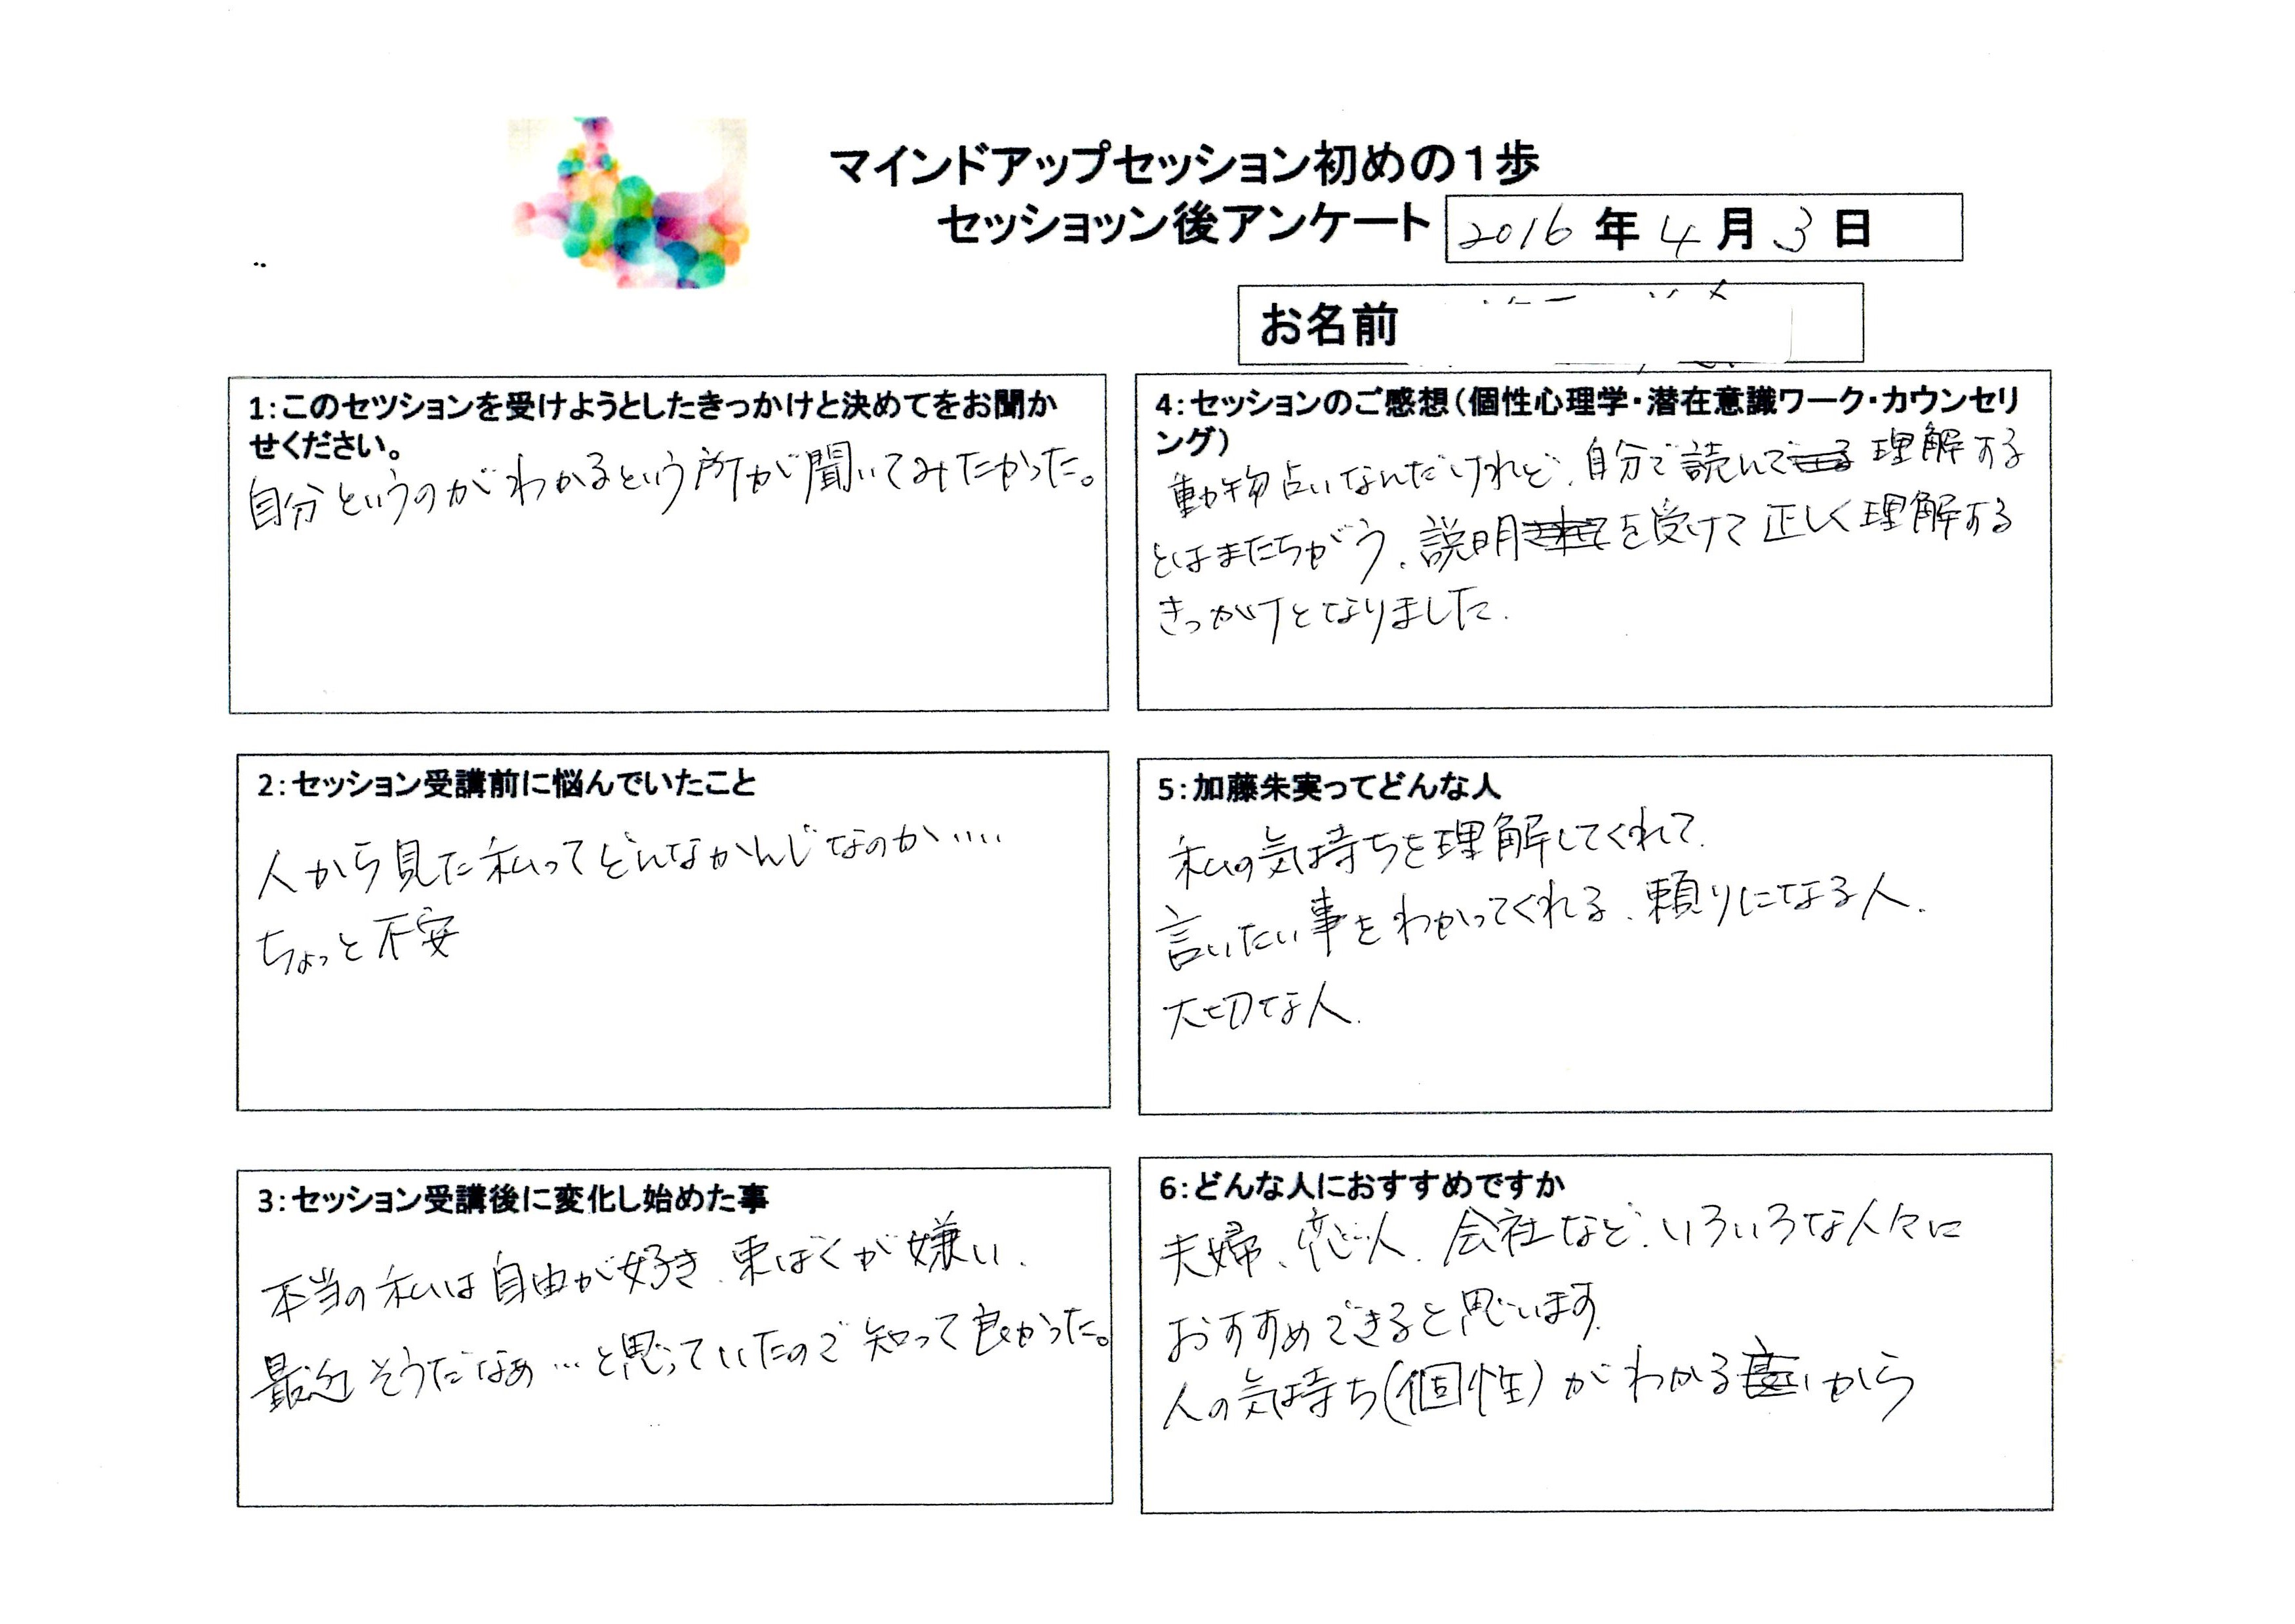 マインドアップセッション初めの１歩
セッショッン後アンケート
2016年4月3日
お名前
1:このセツションを受けようとしたきっかけと決めてをお聞か
せください。
自分というのがわかるという所が聞いてみたかった。
2:セッション受講前に悩んでいたこと
人から見た私ってどんなかんじなのか‥‥
ちょっと不安
3:セッション受講後に変化し始めた事
本当の私は自由が好き、束ばくが嫌い、
最近そうだなぁ…と思っていたので知って良かった。
4:セッションのご感想(個性心理学・潜在意識ワーク・カウンセリ
ング)
動物占いなんだけれど、自分で読んで理解する
とはまたちがう、説明を受けて正しく理解する
きっかけとなりました.
5:加藤朱実ってどんな人
私の気持ちを理解してくれて、
言いたい事をわかってくれる、頼りになる人.
大切な人.
6:どんな人におすすめですか
夫婦、恋人、会社など、いろいろな人々に
おすすめできると思います.
人の気持ち(個性)がわかるから